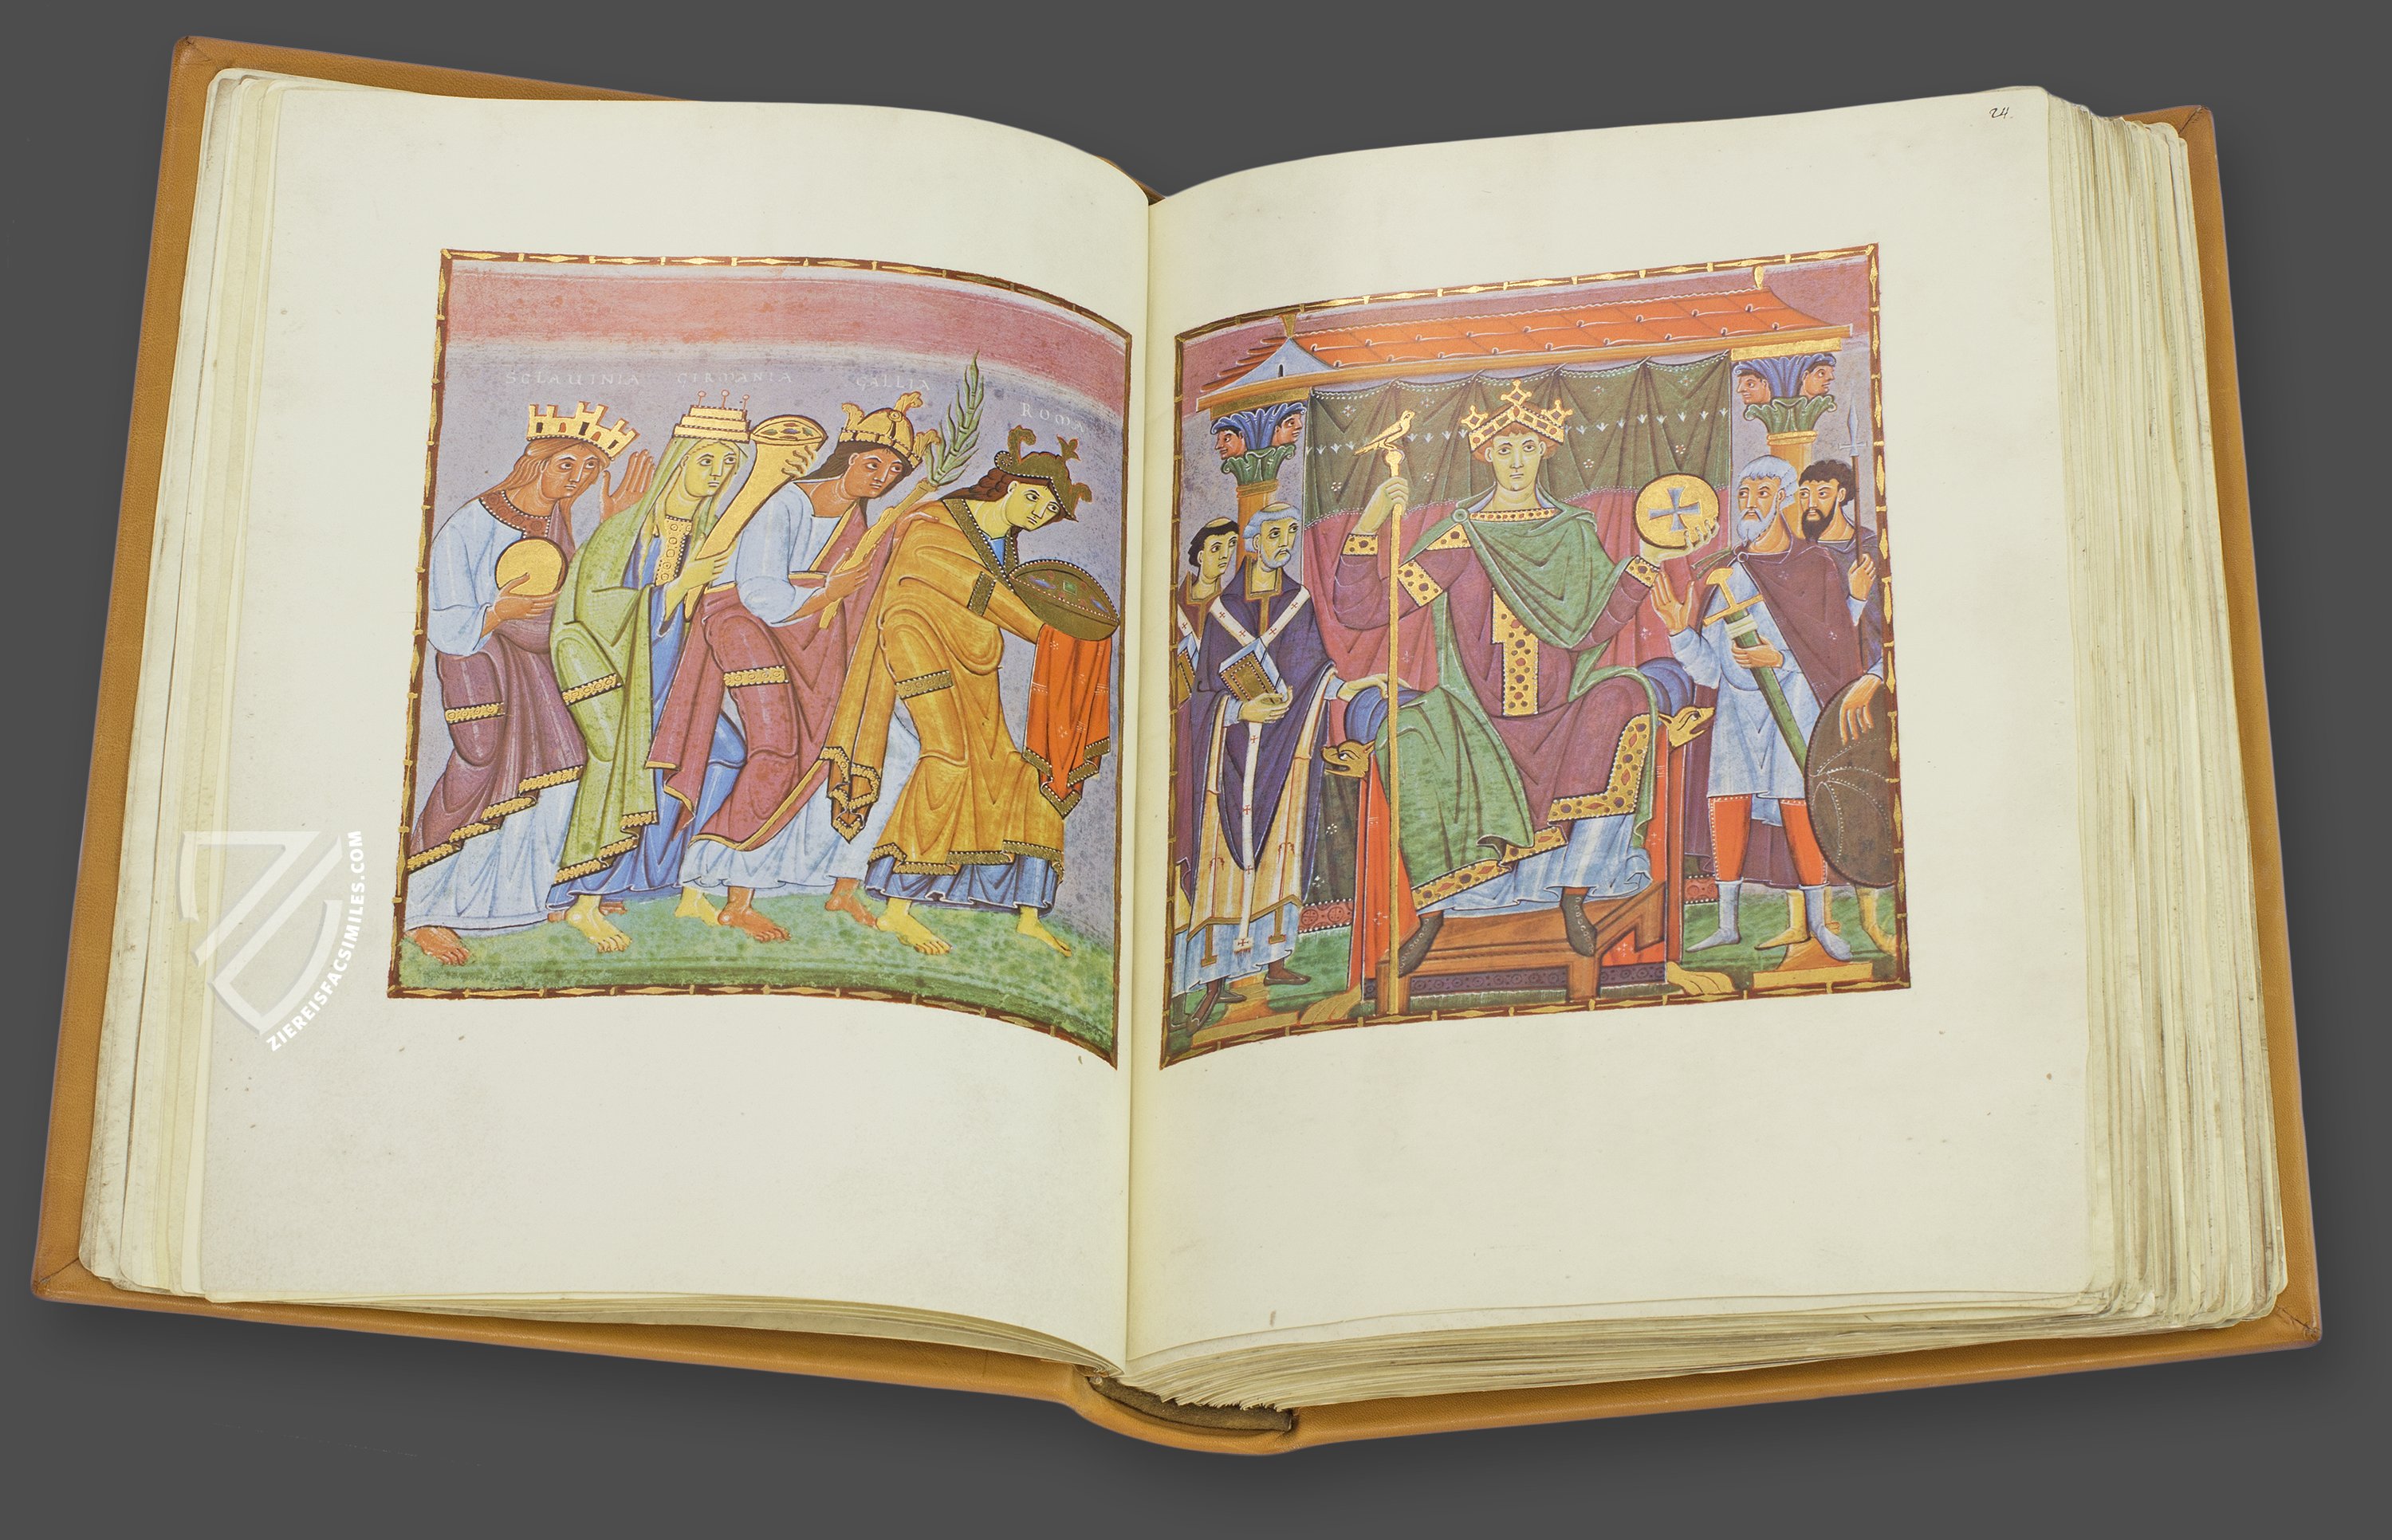 24.
SCLAUINIA GERMANIA GALLIA
ROMA
ZIEREISFACSIMILES.COM